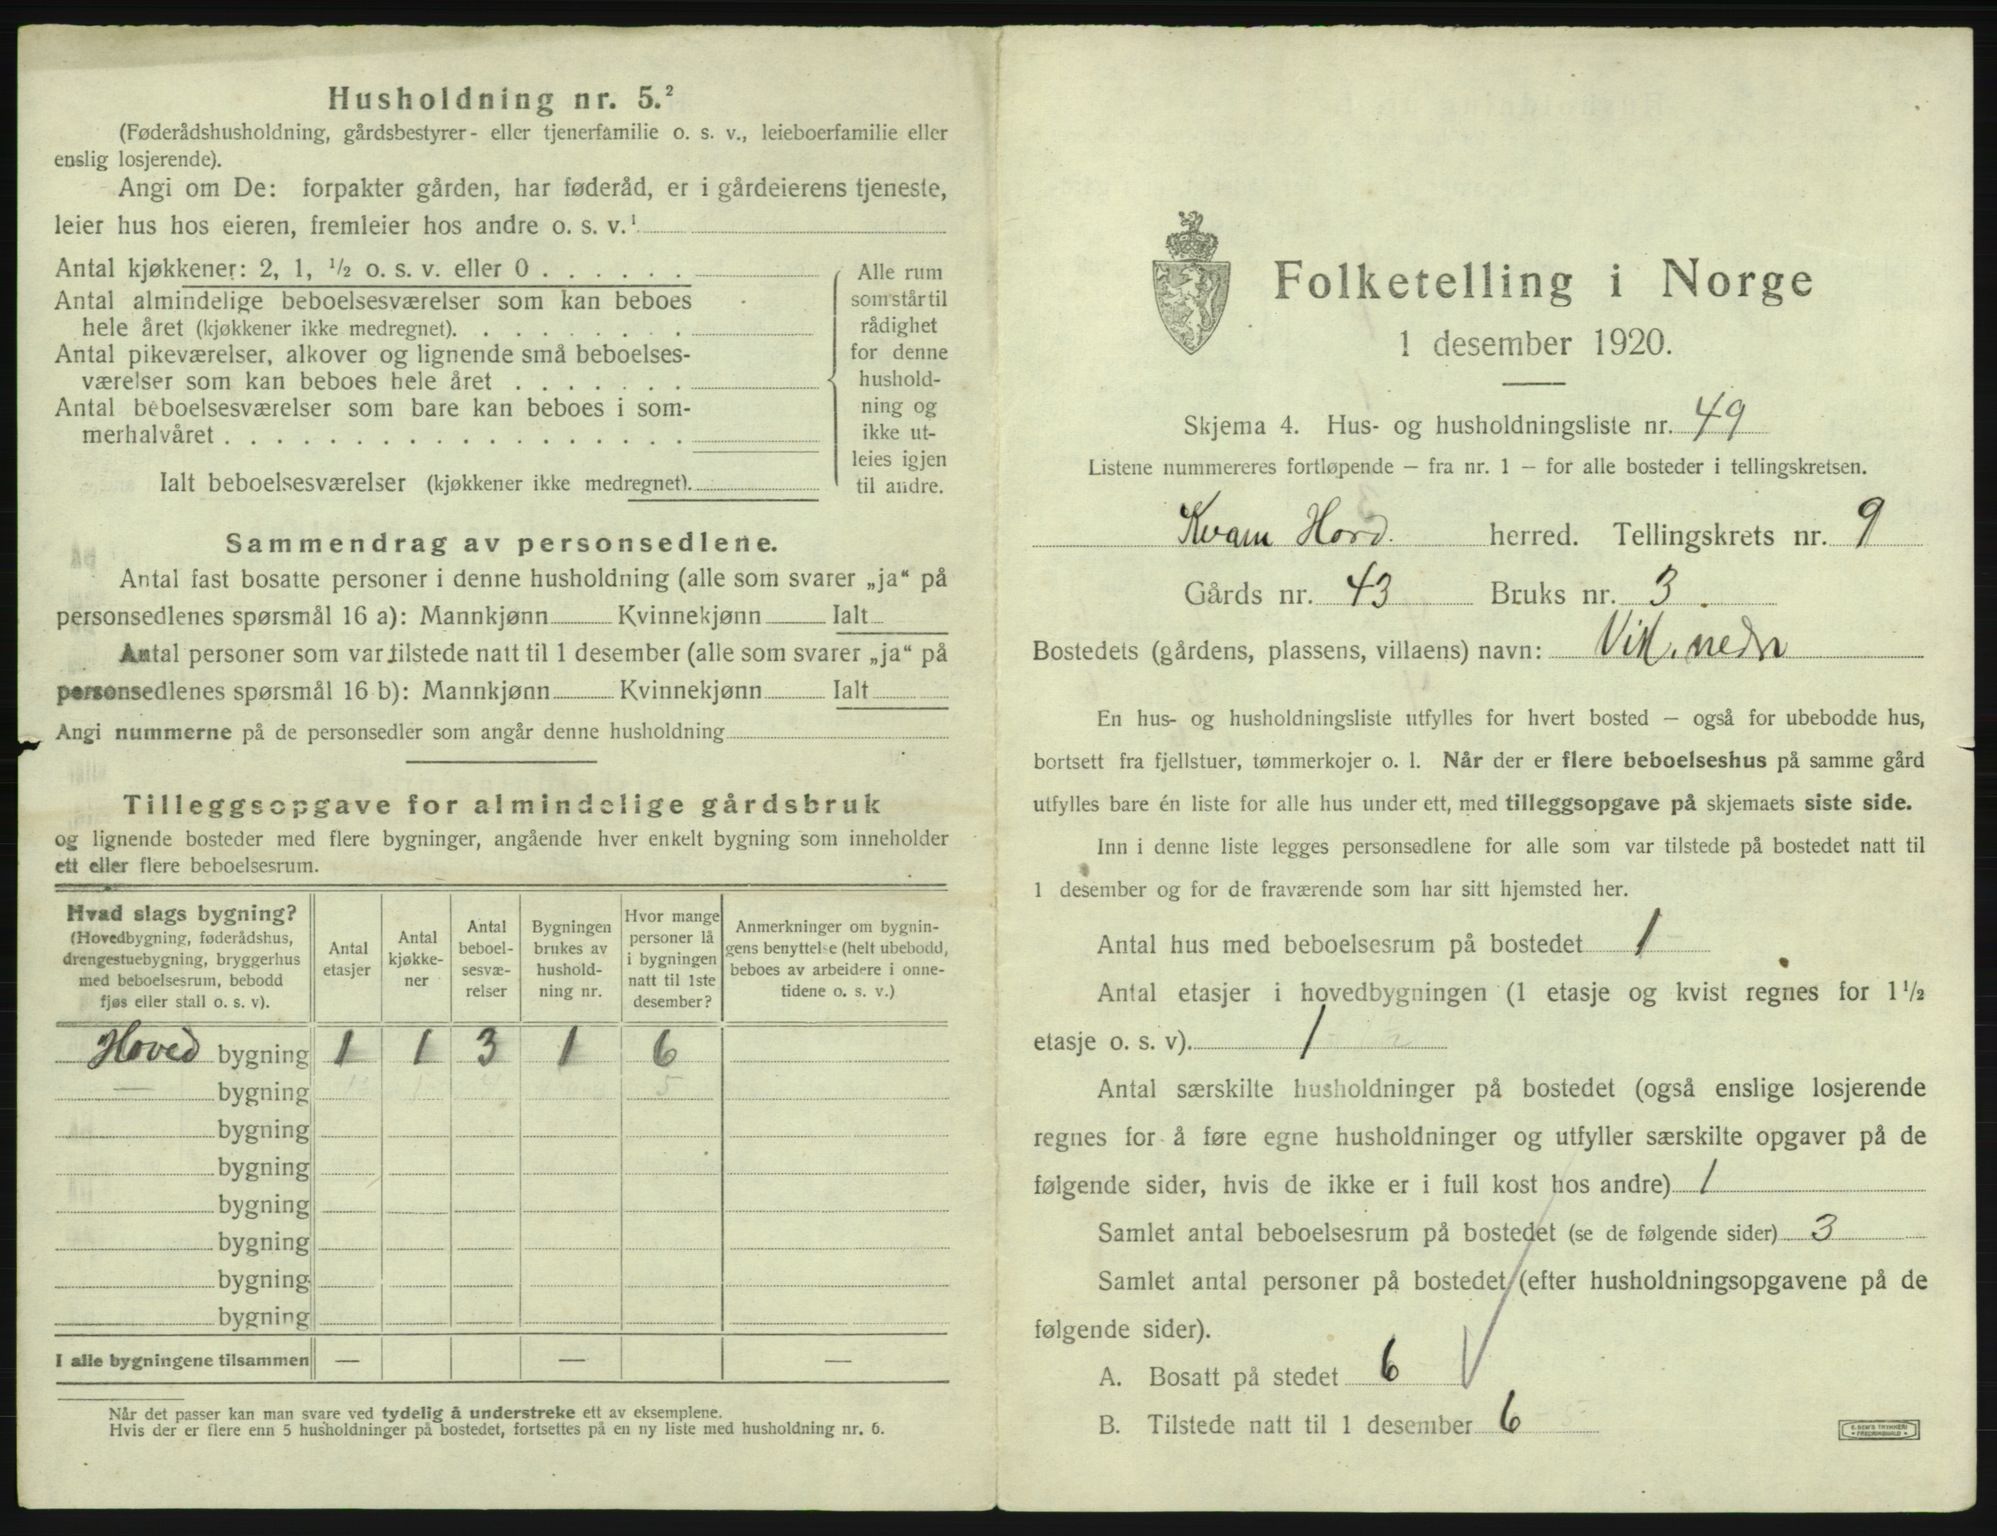 Husholdning nr. 5.²
(Føderådshusholdning, gårdsbestyrer- eller tjenerfamilie o. s. v., leieboerfamilie eller
enslig losjerende).
Angi om De: forpakter gården, har føderåd, er i gårdeierens tjeneste,
leier hus hos eieren, fremleier hos andre o. s. v.¹
Antal kjøkkener: 2, 1, ½ o. s. v. eller 0 . . . . . .
Antal almindelige beboelsesværelser som kan beboes
hele året (kjøkkener ikke medregnet). . . . . . . . .
Antal pikeværelser, alkover og lignende små beboelses-
værelser som kan beboes hele året . . . . . . .
Antal beboelsesværelser som bare kan beboes i som-
merhalvåret . . . . . . . . . . . . . . . . . .
Ialt beboelsesværelser (kjøkkener ikke medregnet).
Alle rum
som står til
rådighet
for denne
hushold-
ning og
ikke ut-
leies igjen
til andre.
Sammendrag av personsedlene.
Antal fast bosatte personer i denne husholdning (alle som svarer „ja“ på
personsedlenes spørsmål 16 a): Mannkjønn Kvinnekjønn Ialt
Antal personer som var tilstede natt til 1 desember (alle som svarer „ja“ på
personsedlenes spørsmål 16 b): Mannkjønn Kvinnekjønn Ialt
Angi nummerne på de personsedler som angår denne husholdning
Tilleggsopgave for almindelige gårdsbruk
og lignende bosteder med flere bygninger, angående hver enkelt bygning som inneholder
ett eller flere beboelsesrum.
Hvad slags bygning?
(Hovedbygning, føderådshus,
drengestuebygning, bryggerhus
med beboelsesrum, bebodd
fjøs eller stall o. s. v).
Antal
etasjer
Antal
kjøkke-
ner
Antal
beboel-
sesvæ-
relser
Bygningen
brukes av
hushold-
ning nr.
Hvor mange
personer lå
i bygningen
natt til 1ste
desember?
Anmerkninger om bygnin-
gens benyttelse (helt ubebodd,
beboes av arbeidere i onne-
tidene o. s. v.)
Hoved bygning 1 1 3 1 6
— bygning 5
bygning
bygning
bygning
bygning
bygning
bygning
I alle bygningene tilsammen — — —
Når det passer kan man svare ved tydelig å understreke ett av eksemplene.
Hvis der er flere enn 5 husholdninger på bostedet, fortsettes på en ny liste med husholdning nr. 6.
Folketelling i Norge
1 desember 1920.
Skjema 4. Hus- og husholdningsliste nr. 49
Listene nummereres fortløpende – fra nr. 1 – for alle bosteder i tellingskretsen.
Kvam Hord. herred. Tellingskrets nr. 9
Gårds nr. 43 Bruks nr. 3
Bostedets (gårdens, plassens, villaens) navn: Vik. nedr
En hus- og husholdningsliste utfylles for hvert bosted – også for ubebodde hus,
bortsett fra fjellstuer, tømmerkojer o. l. Når der er flere beboelseshus på samme gård
utfylles bare én liste for alle hus under ett, med tilleggsopgave på skjemaets siste side.
Inn i denne liste legges personsedlene for alle som var tilstede på bostedet natt til
1 desember og for de fraværende som har sitt hjemsted her.
Antal hus med beboelsesrum på bostedet 1
Antal etasjer i hovedbygningen (1 etasje og kvist regnes for 1½
etasje o. s. v). 1
Antal særskilte husholdninger på bostedet (også enslige losjerende
regnes for å føre egne husholdninger og utfyller særskilte opgaver på de
følgende sider, hvis de ikke er i full kost hos andre) 1
Samlet antal beboelsesrum på bostedet (se de følgende sider) 3
Samlet antal personer på bostedet (efter husholdningsopgavene på de
følgende sider).
A. Bosatt på stedet 6
B. Tilstede natt til 1 desember 6